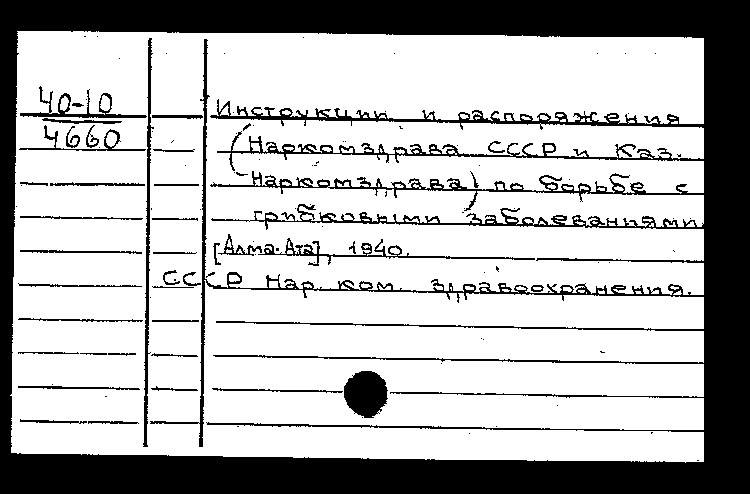 40-10
4660
Инструкции и распоряжения
(Наркомздрава СССР и Каз.
Наркомздрава) по борьбе с
грибковыми заболеваниями.
[Алма-Ата], 1940.
СССР Нар. ком. здравоохранения.